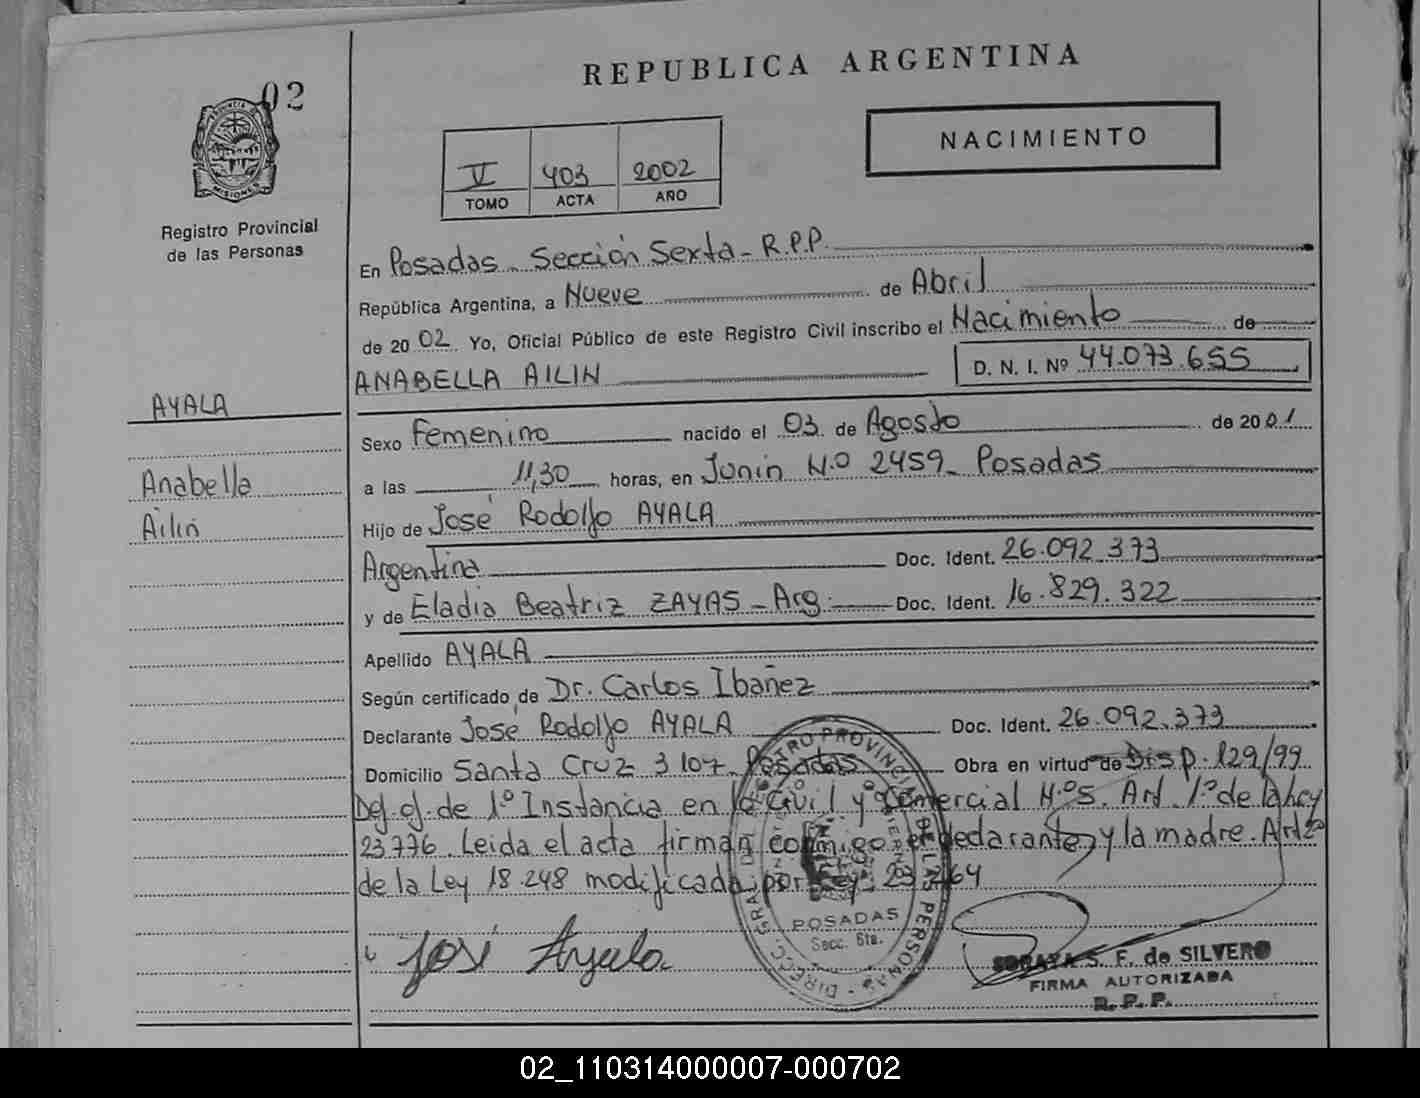 REPUBLICA ARGENTINA
02
PROVINCIA DE
MISIONES
Registro Provincial
de las Personas
NACIMIENTO
V 403 2002
TOMO ACTA AÑO
En Posadas - Sección Sexta - R.P.P.
República Argentina, a Nueve de Abril
de 20 02 Yo, Oficial Público de este Registro Civil inscribo el Nacimiento de
ANABELLA AILIN D. N. I. Nº 44.073.655
AYALA
Anabella
Ailin
Sexo Femenino nacido el 03 de Agosto de 20 01
a las 11,30 horas, en Junin N.º 2459 - Posadas
Hijo de José Rodolfo AYALA
Argentina Doc. Ident. 26.092.373
y de Eladia Beatriz ZAYAS - Arg. Doc. Ident. 16.829.322
Apellido AYALA
Según certificado de Dr. Carlos Ibañez
Declarante José Rodolfo AYALA Doc. Ident. 26.092.373
Domicilio Santa Cruz 3107 - Posadas Obra en virtud de Disp. 129/99
Def. of. de 1º Instancia en lo Civil y Comercial Nº5. Art. 1º de la Ley
23776. Leida el acta firman conmigo el declarante y la madre. Art 2º
de la Ley 18.248 modificada por Ley 23.264
José Ayala
POSADAS
Secc. 6ta.
SORAYA S. F. de SILVERO
FIRMA AUTORIZADA
R. P. P.
02_110314000007-000702